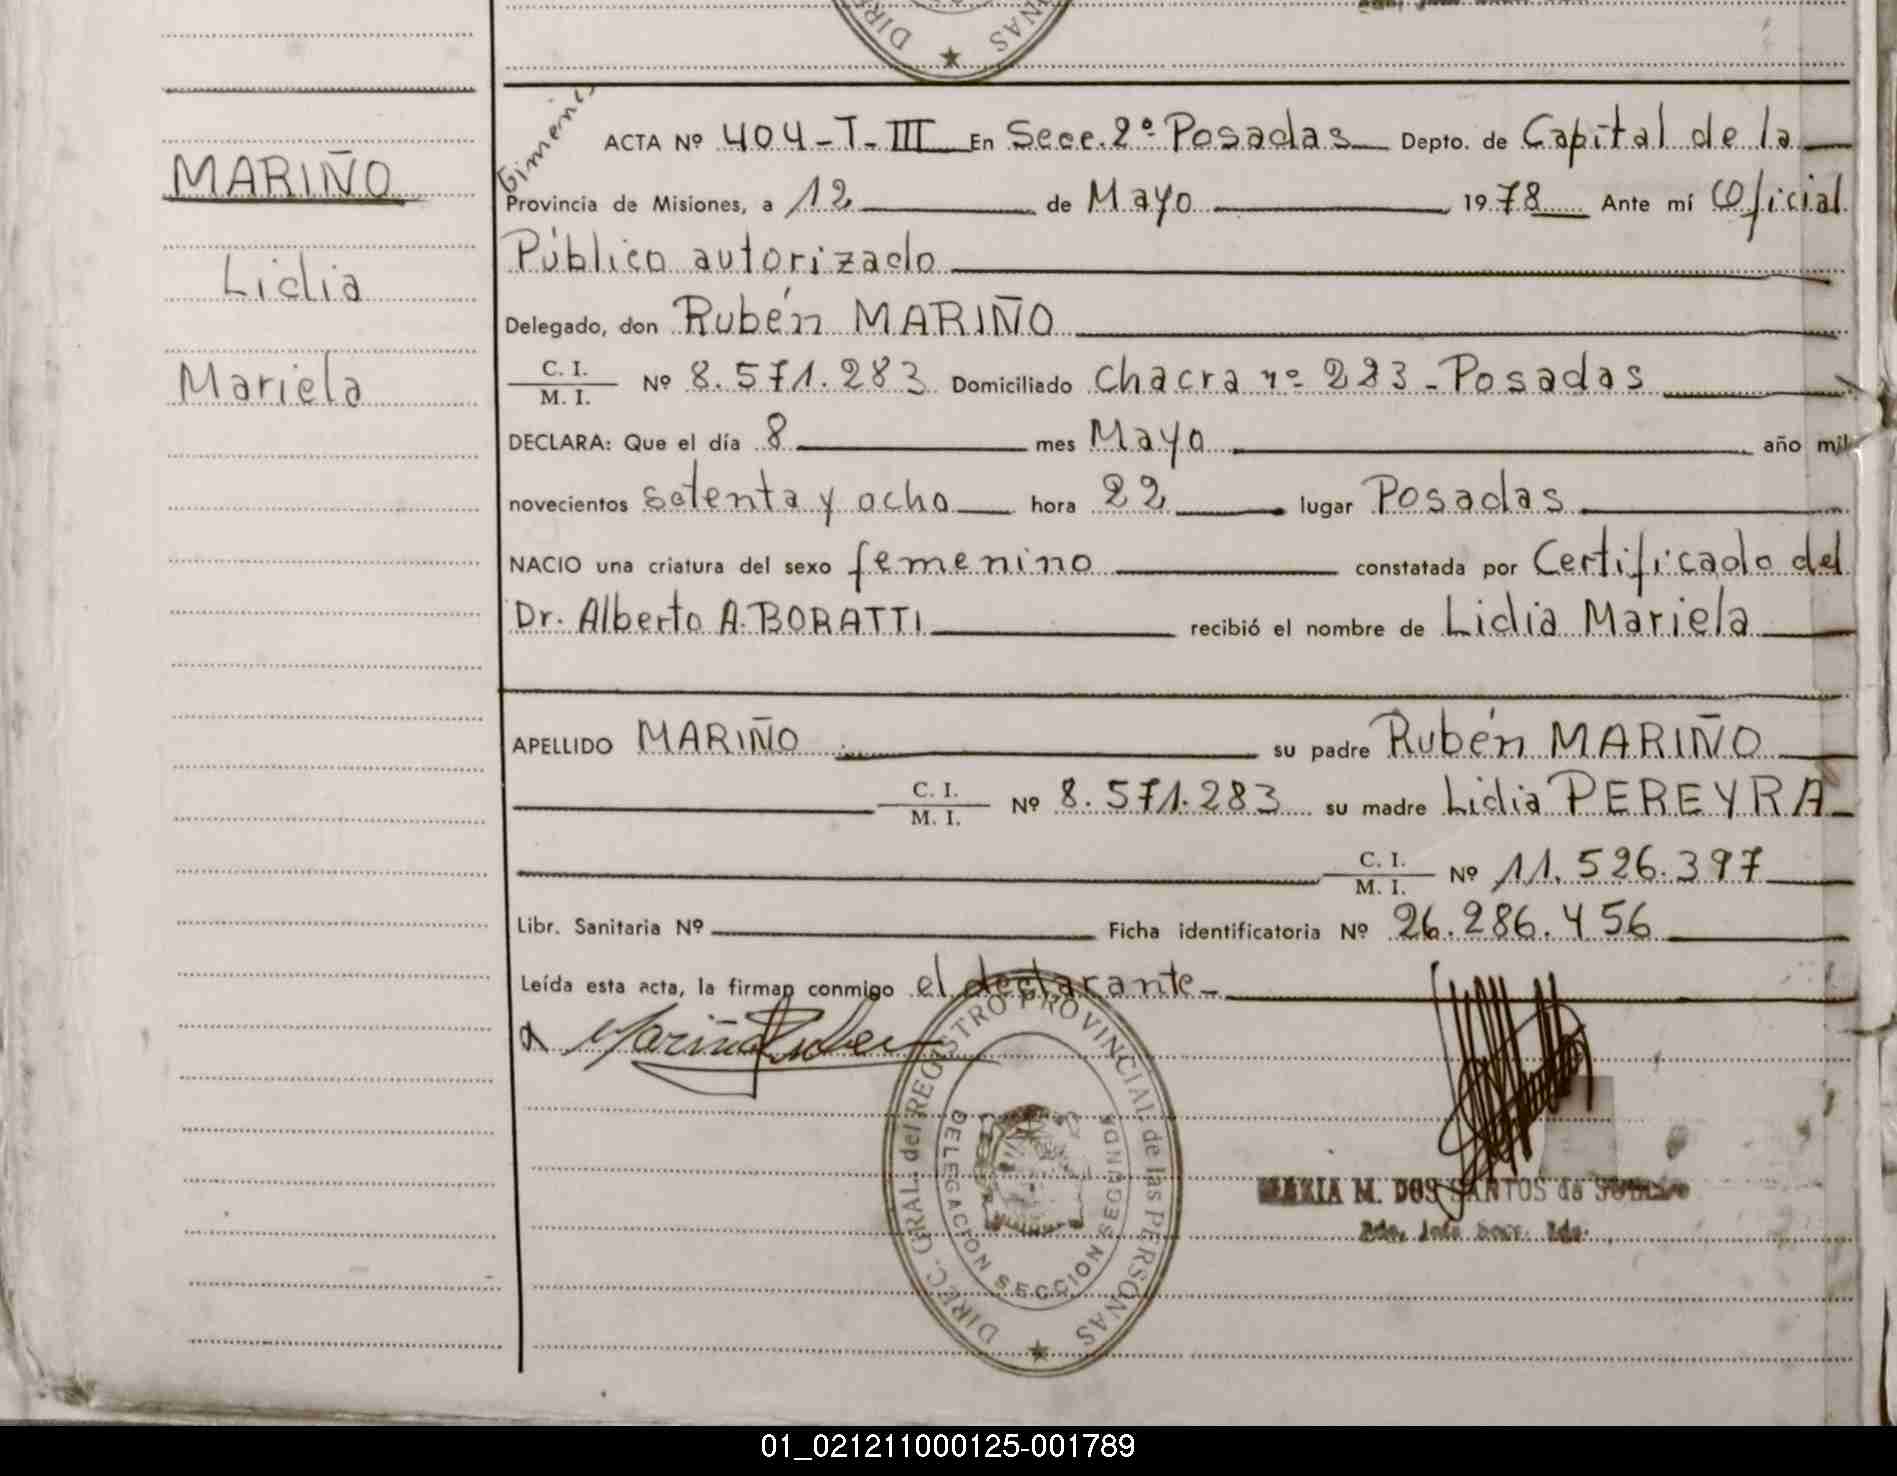 MARIÑO
Lidia
Mariela
Gimenez
ACTA Nº 404-T-III En Secc. 2º Posadas Depto. de Capital de la
Provincia de Misiones, a 12 de Mayo 1978 Ante mí Oficial
Público autorizado
Delegado, don Rubén MARIÑO
C. I.
M. I. Nº 8.571.283 Domiciliado Chacra nº 223-Posadas
DECLARA: Que el día 8 mes Mayo año mil
novecientos setenta y ocho hora 22 lugar Posadas
NACIO una criatura del sexo femenino constatada por Certificado del
Dr. Alberto A. BORATTI recibió el nombre de Lidia Mariela
APELLIDO MARIÑO su padre Rubén MARIÑO
C. I.
M. I. Nº 8.571.283 su madre Lidia PEREYRA
C. I.
M. I. Nº 11.526.397
Libr. Sanitaria Nº Ficha identificatoria Nº 26.286.456
Leída esta acta, la firman conmigo el declarante-
Mariño Ruben
DIREC. GRAL. del REGISTRO PROVINCIAL de las PERSONAS
DELEGACION SECCION SEGUNDA
MARIA M. DOS SANTOS de
01_021211000125-001789